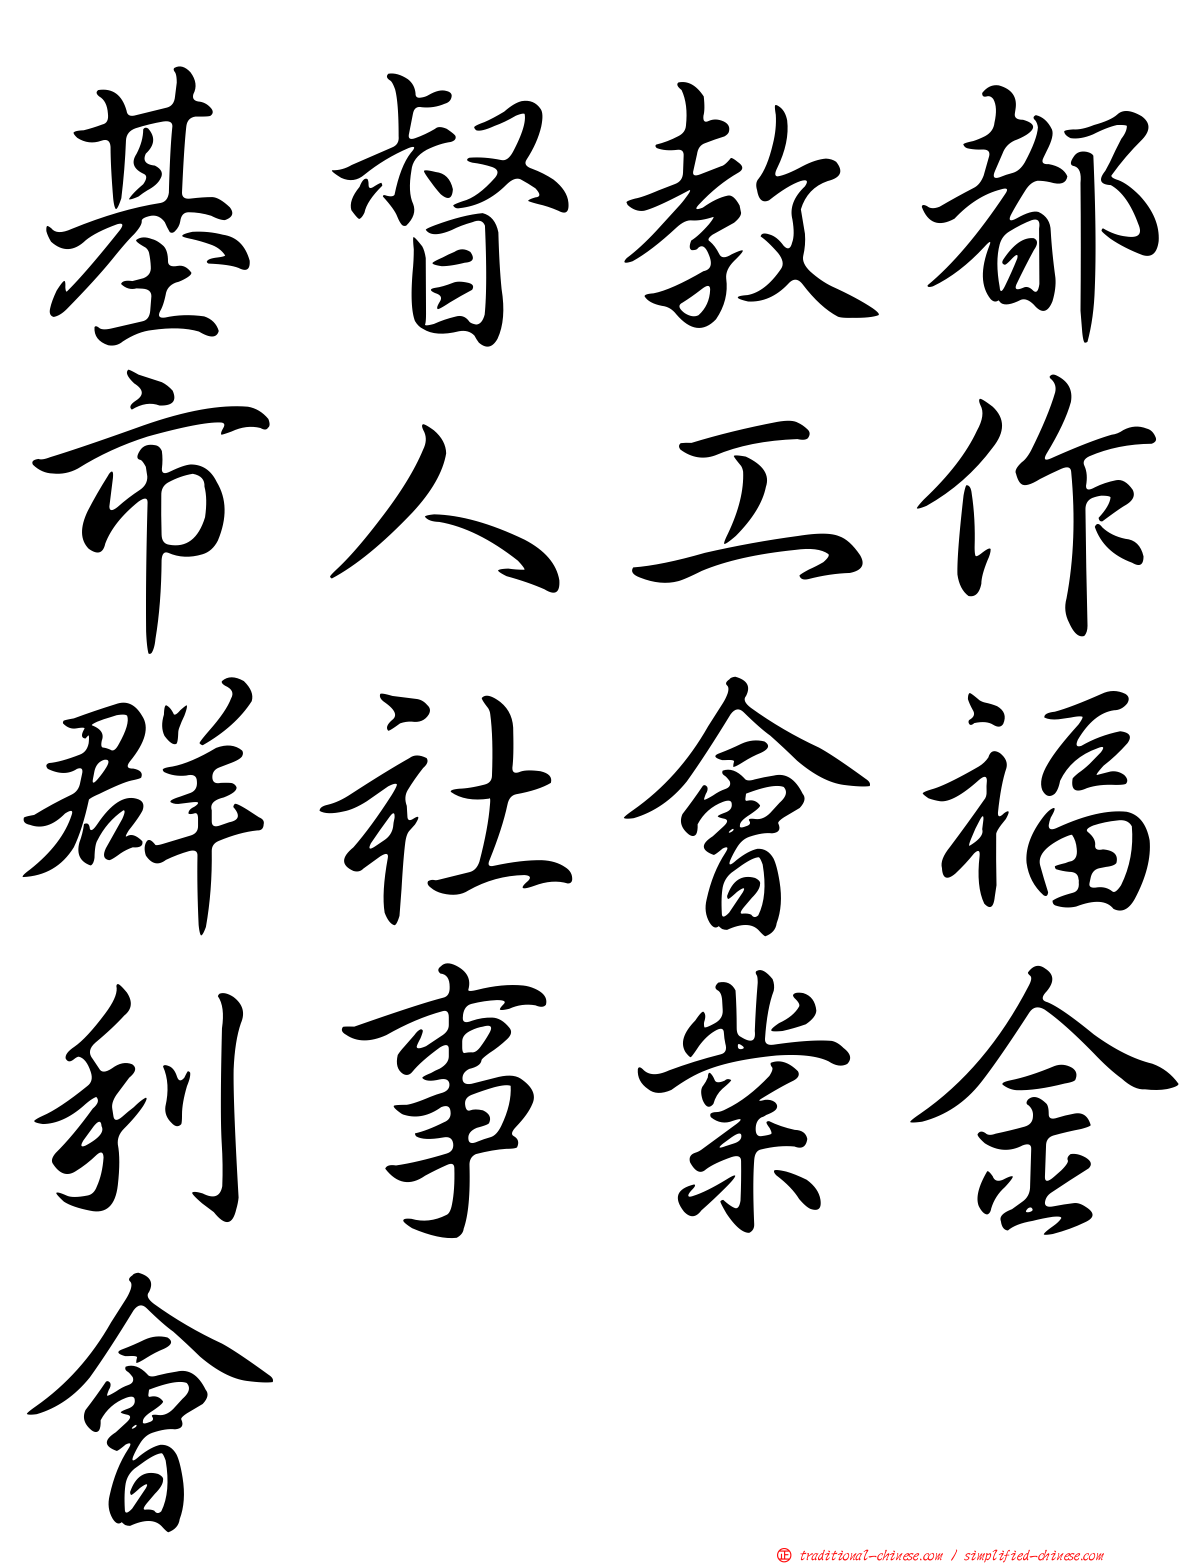 基督教都
市人工作
群社會福
利事業金
會
正 traditional-chinese.com / simplified-chinese.com